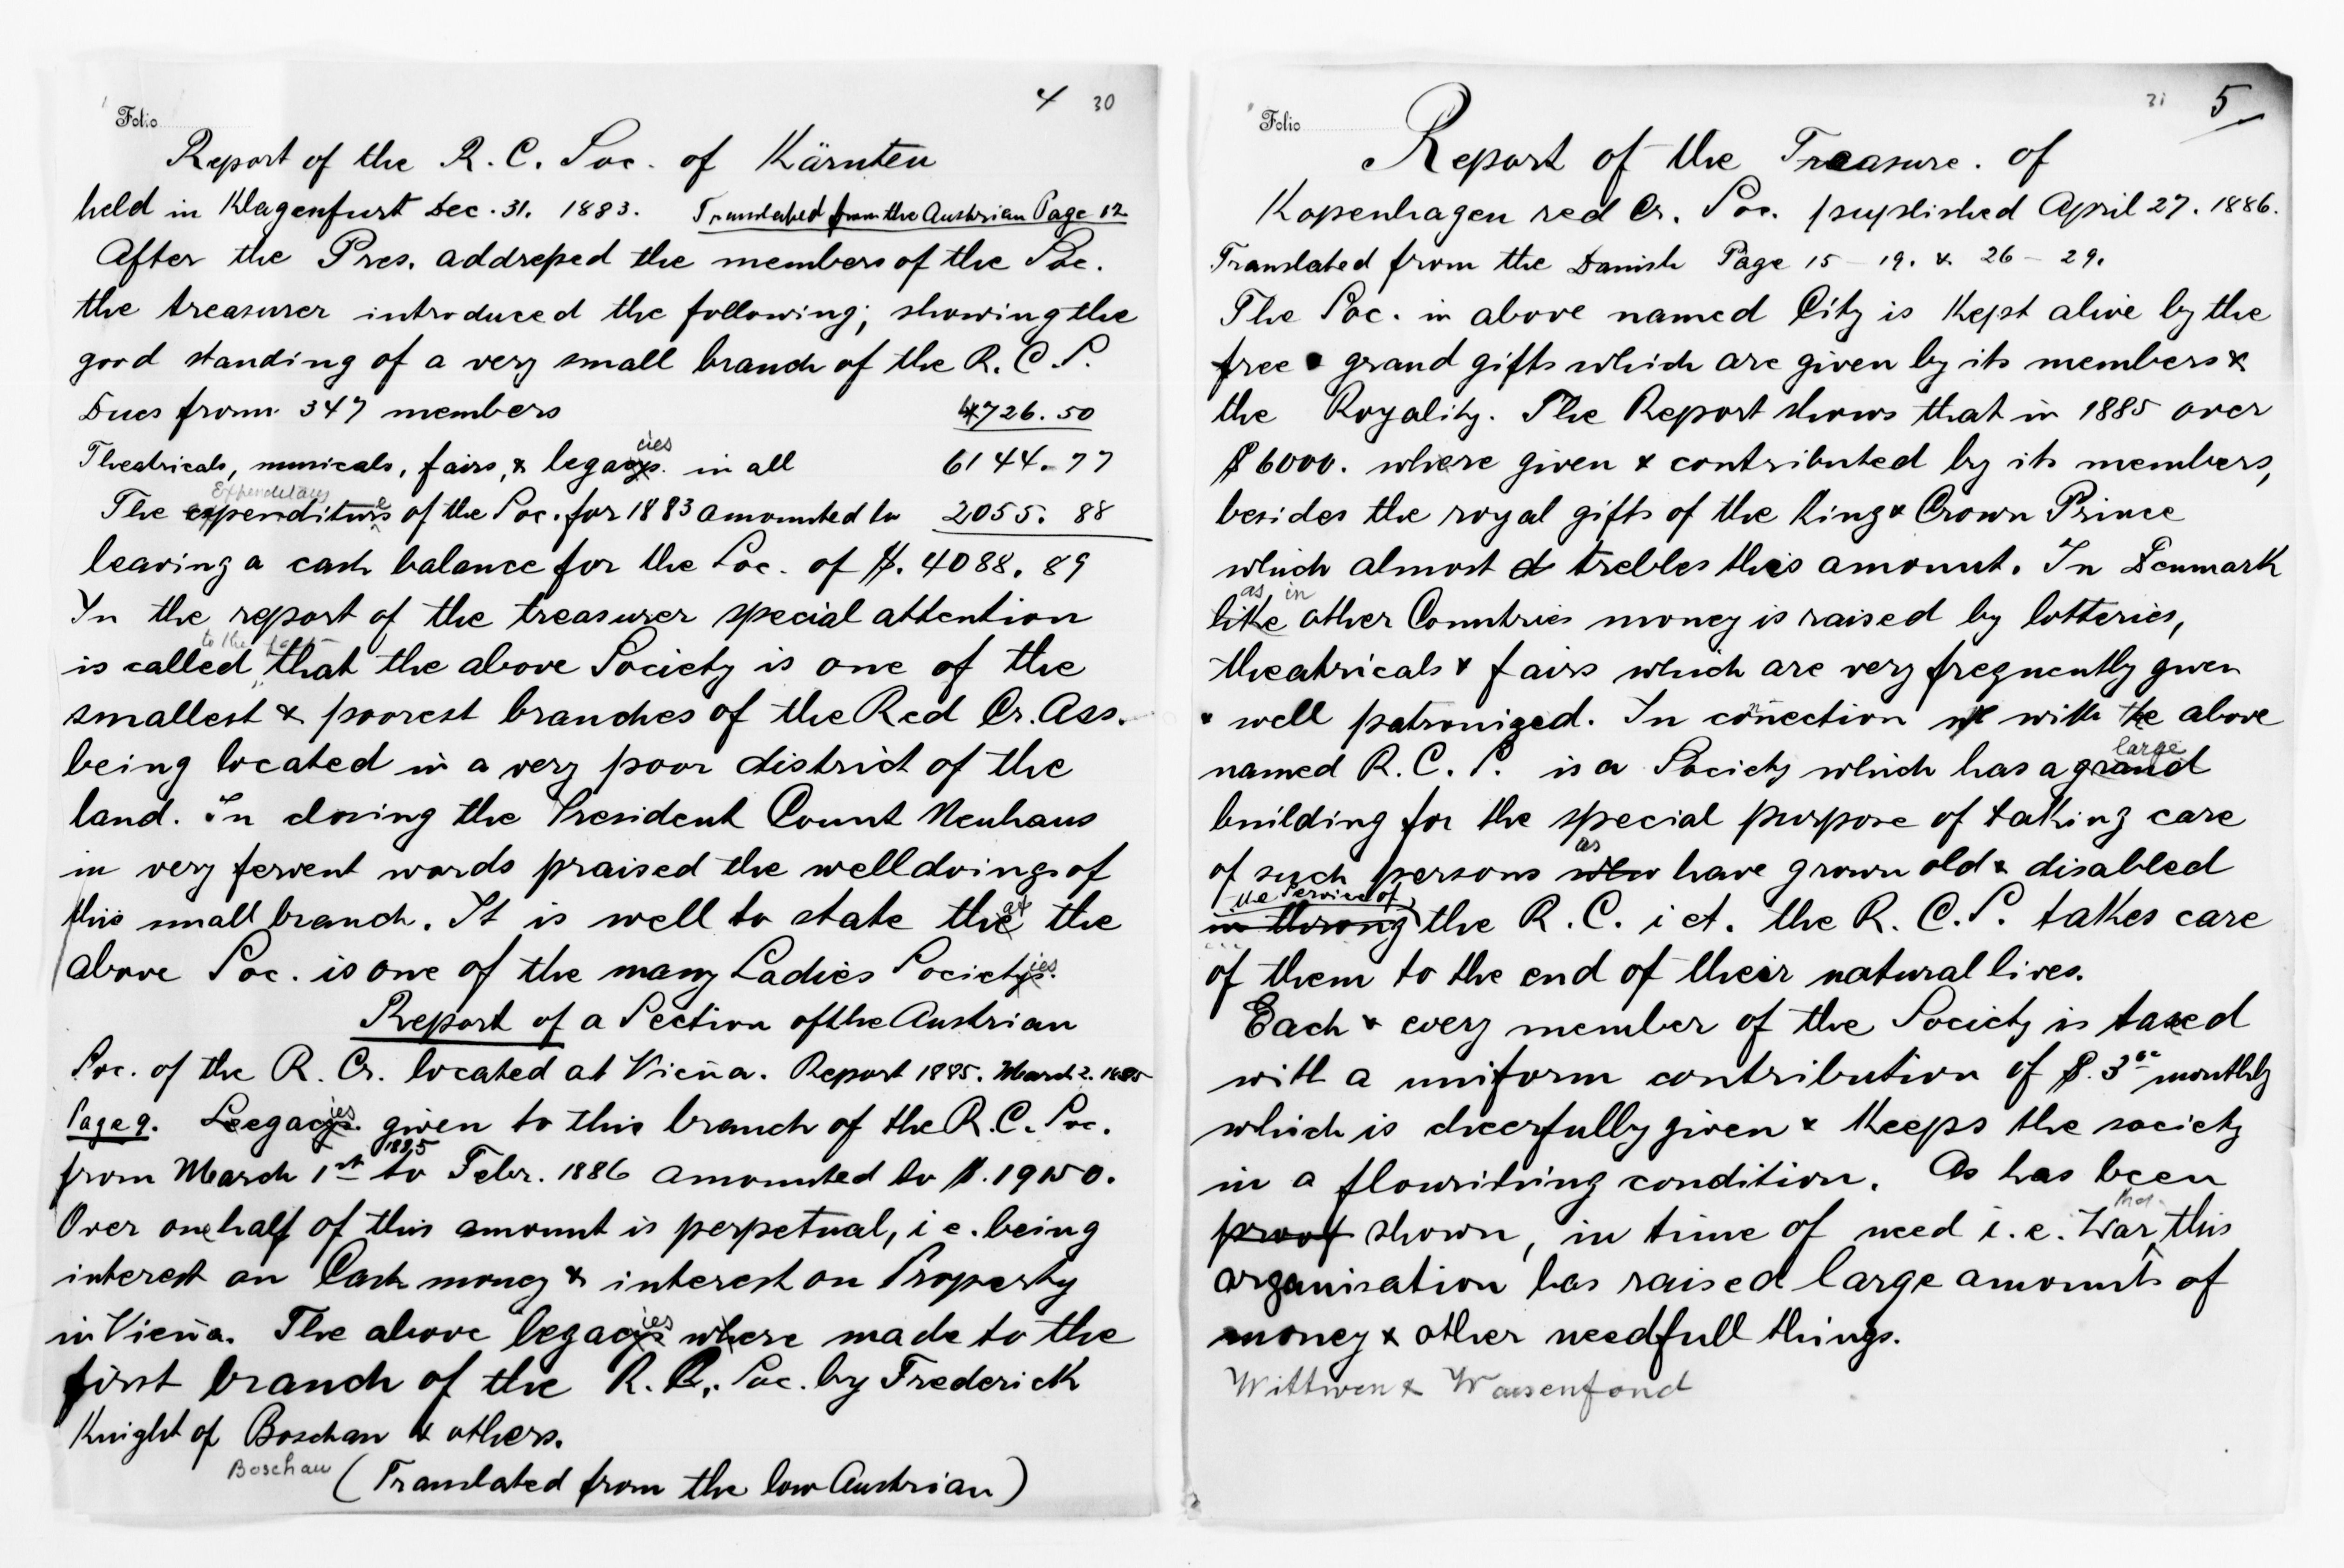 4 30
Folio
Report of the R. C. Soc. of Kärnten
held in Klagenfurt Dec. 31. 1883. Translated from the Austrian Page 12
After the Pres. addressed the members of the Soc.
the treasurer introduced the following; showing the
good standing of a very small branch of the R. C. S.
Dues from 347 members 4726.50
cies
Theatricals, musicals, fairs, & legacys. in all 6144.77
Expenditures
The expenditures of the Soc. for 1883 amounted to 2055. 88
leaving a cash balance for the Soc. of $. 4088. 89
In the report of the treasurer special attention
to the fact
is called that the above Society is one of the
smallest & poorest branches of the Red Cr. Ass.
being located in a very poor district of the
land. In closing the President Count Neuhaus
in very fervent words praised the welldoings of
at
this small branch. It is well to state the the
ies
above Soc. is one of the many Ladies Societys.
Report of a Section of the Austrian
Soc. of the R. Cr. located at Vien̄a. Report 1885. March 2. 1885
ies
Page 9. Leegacys. given to this branch of the R. C. Soc.
1885
from March 1st to Febr. 1886 amounted to $. 19150.
Over one half of this amount is perpetual, i e. being
interest on Cash money & interest on Property
ies
in Vien̄a. The above legacys where made to the
first branch of the R. C. Soc. by Frederick
Knight of Boschan & others.
Boschan
(Translated from the low Austrian)
31 5
Folio
Report of the Treasure. of
Kopenhagen red Cr. Soc. puplished April 27. 1886.
Translated from the Danish Page 15 - 19. & 26 - 29.
The Soc. in above named City is kept alive by the
free grand gifts which are given by its members &
the Royality. The Report shows that in 1885 over
$ 6000. where given & contributed by its members,
besides the royal gifts of the King & Crown Prince
which almost trebles this amount. In Denmark
as in
like other Countries money is raised by lotteries,
theatricals & fairs which are very frequently given
& well patronized. In con̄ection with the above
large
named R. C. S. is a Society which has a grand
building for the special purpose of taking care
as
of such persons who have grown old & disabled
the Service of
in throng the R. C. i et. the R. C. S. takes care
of them to the end of their natural lives.
Each & every member of the Society is taxed
with a uniform contribution of $. 3 monthly
which is cheerfully given & keeps the society
in a flourishing condition. As has been
that
proof shown, in time of need i. e. War this
organisation has raised large amounts of
money & other needfull things.
Wittwen & Waisenfond